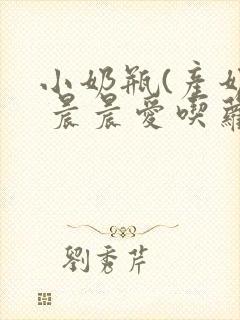 小奶瓶(產奶
晨晨愛喫蘿
劉秀芹